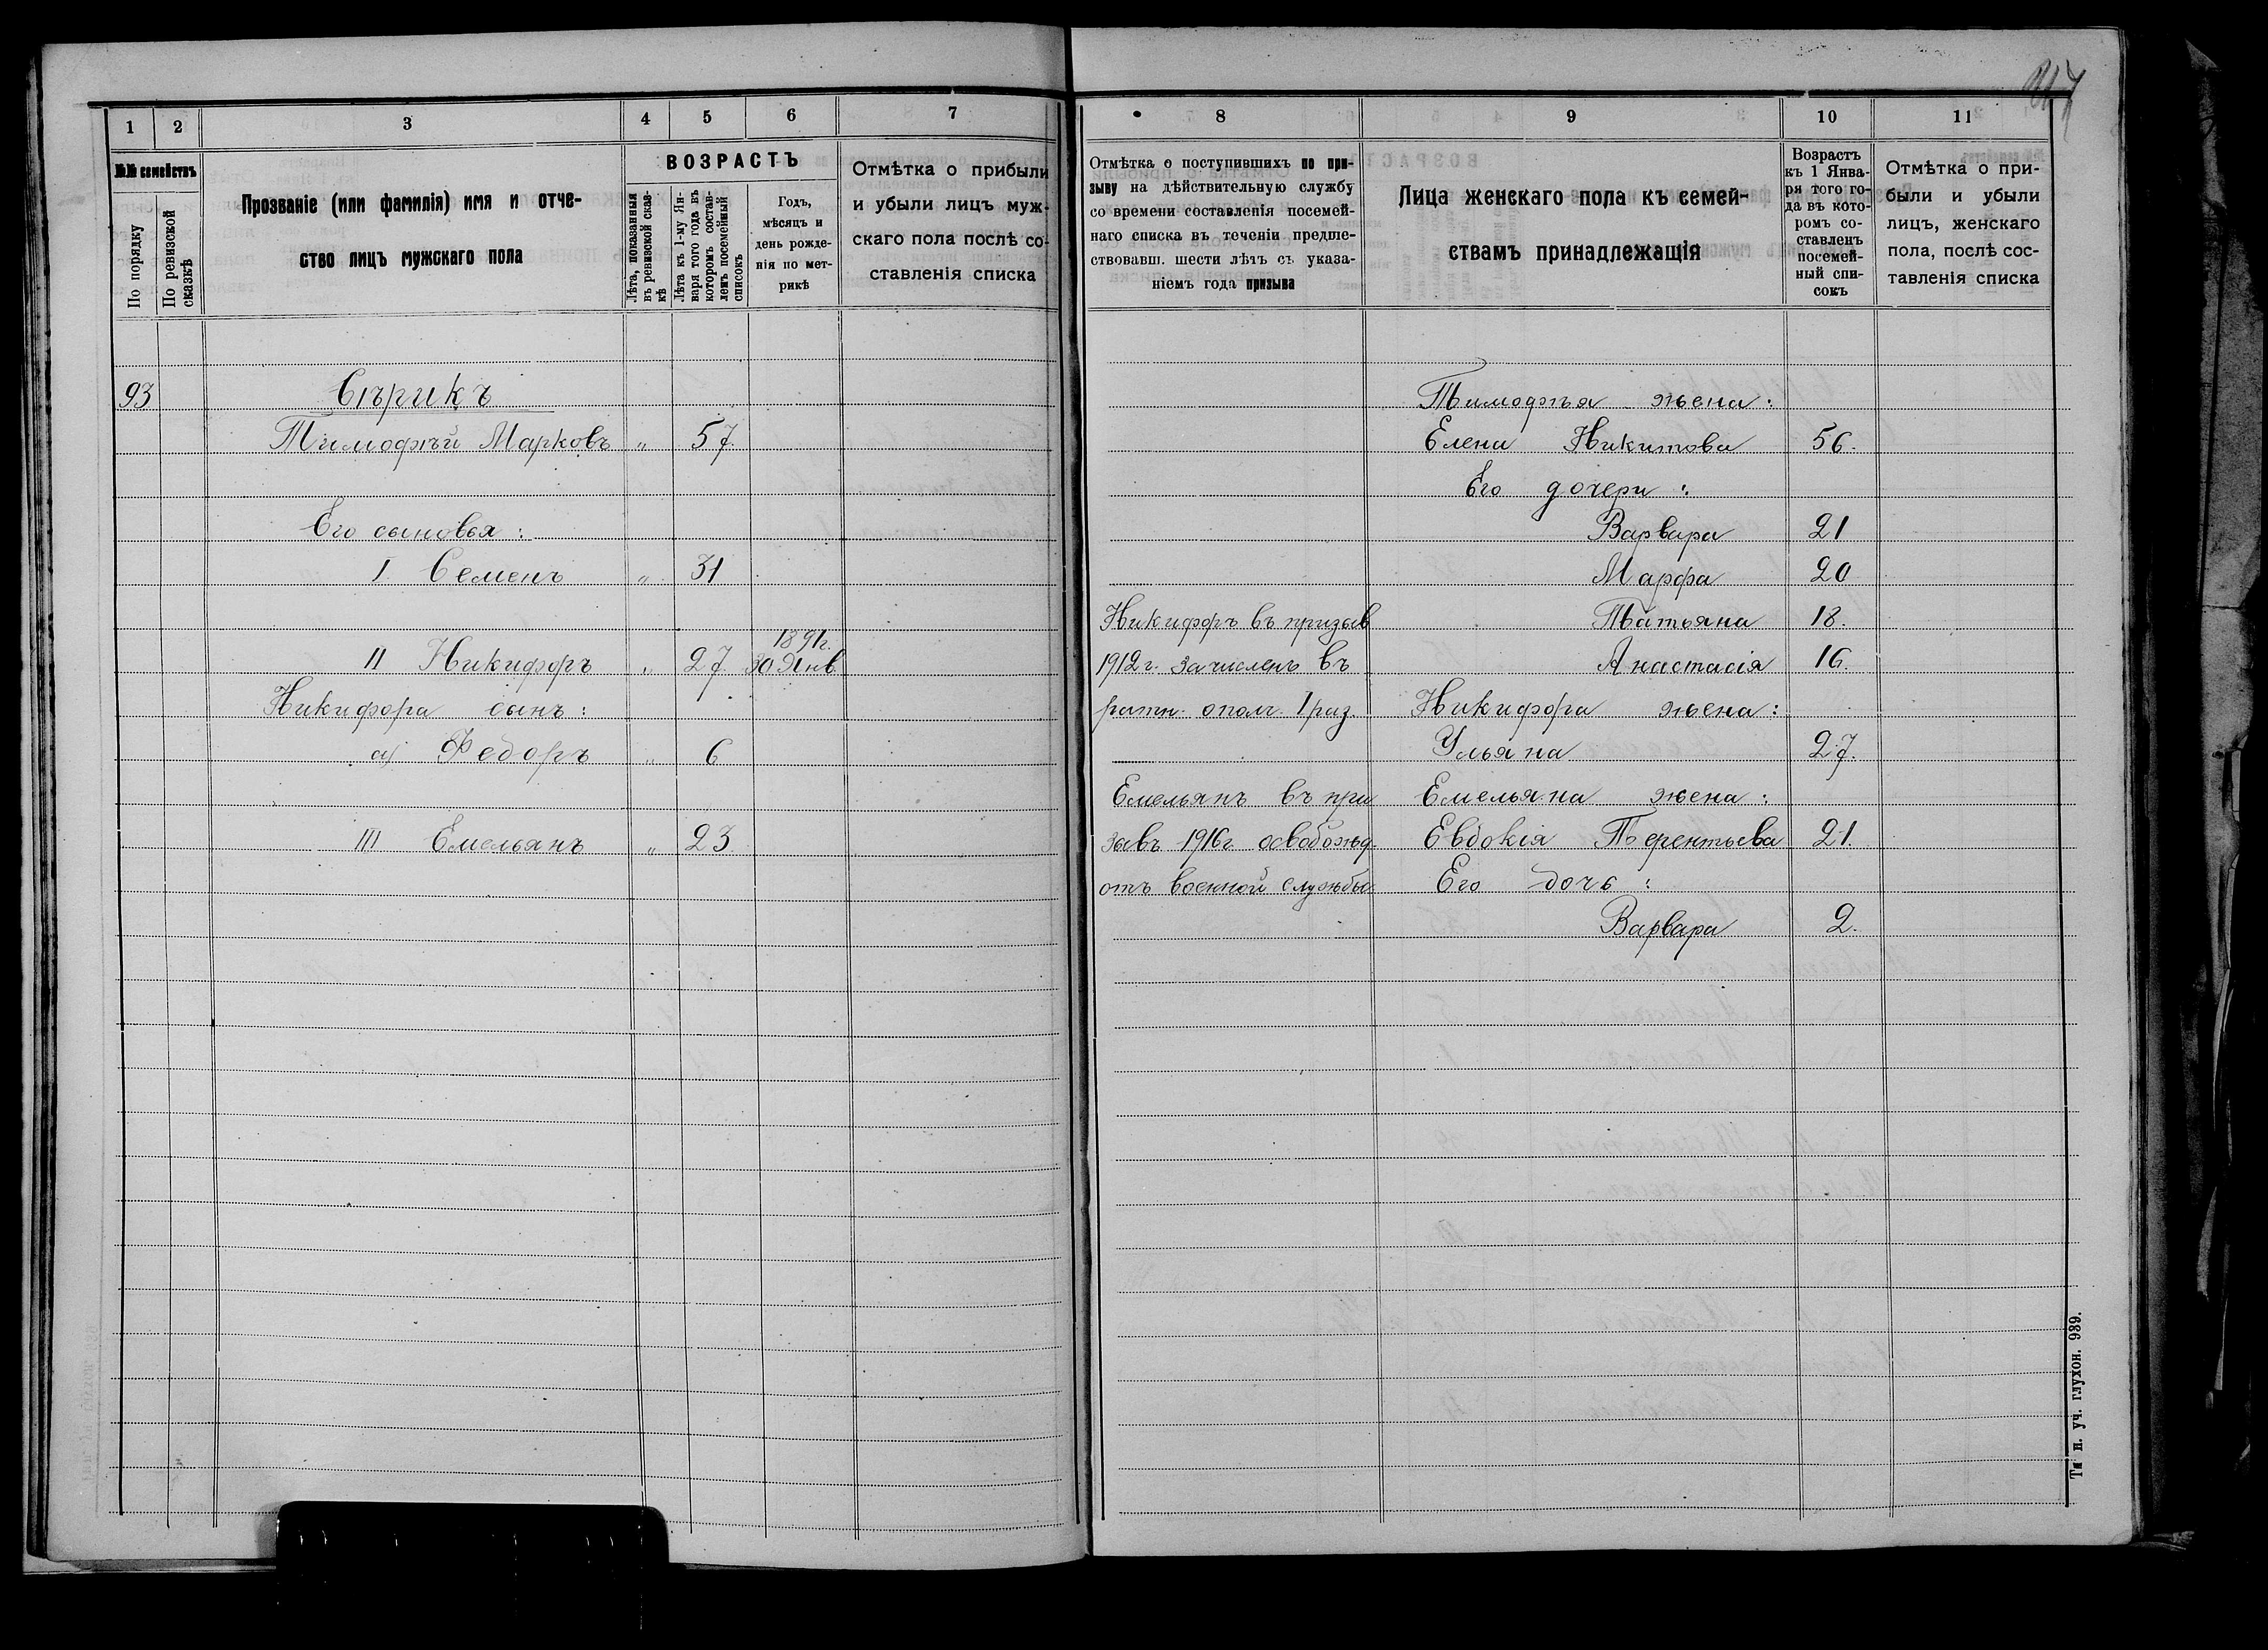 1 2 3 4 5 6 7
№№ семействъ
По порядку
По ревизской сказкѣ
Прозваніе (или фамилія) имя и отче-
ство лицъ мужскаго пола
ВОЗРАСТЪ
Лѣта, показанныя
въ ревизской сказ-
кѣ
Лѣта къ 1-му Ян-
варя того года въ
которомъ состав-
ленъ посемейный
списокъ
Годъ,
мѣсяцъ и
день рожде-
нія по мет-
рикѣ
Отмѣтка о прибыли
и убыли лицъ муж-
скаго пола послѣ со-
ставленія списка
93 Сѣрикъ
Тимофѣй Марковъ „ 57.
Его сыновья:
I. Семенъ „ 31
1891г.
II Никифоръ „ 27. 30 Янв.
Никифора сынъ:
а) Федоръ „ 6
III Емельянъ „ 23
8 9 10 11
Отмѣтка о поступившихъ по при-
зыву на дѣйствительную службу
со времени составленія посемей-
наго списка въ теченіи предше-
ствовавш. шести лѣтъ съ указа-
ніемъ года призыва
Лица женскаго пола къ семей-
ствамъ принадлежащія
Возрастъ
къ 1 Янва-
ря того го-
да въ кото-
ромъ со-
ставленъ
посемей-
ный спи-
сокъ
Отмѣтка о при-
были и убыли
лицъ, женскаго
пола, послѣ сос-
тавленія списка
Тимофѣя жена:
Елена Никитова 56.
Его дочери:
Варвара 21
Марфа 20
Никифоръ въ призыв Татьяна 18.
1912 г. зачисленъ въ Анастасія 16.
ратн. ополч. I раз. Никифора жена:
Ульяна 27.
Емельянъ въ при Емельяна жена:
зывъ 1916г. освобожд. Евдокія Терентьева 21.
отъ военной службы Его дочь:
Варвара 2.
уч. глухон. 939.